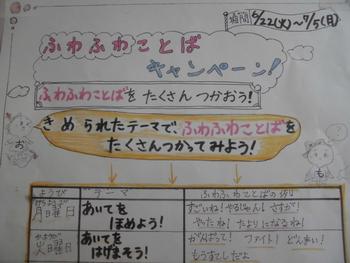 期間 6/22(火)~7/5(月)
ふわふわことば
キャンペーン!
ふわふわことばを たくさん つかおう!
きめられたテーマで、ふわふわことばを
たくさんつかってみよう!
お
も
ようび テーマ ふわふわことばの例
げつようび
月曜日 あいてを ほめよう! すごいね! やるじゃん! さすが!
やったね! たよりになるね!
かようび
火曜日 あいてを はげまそう! がんばって! ファイト! どんまい!
もうすこしだよ